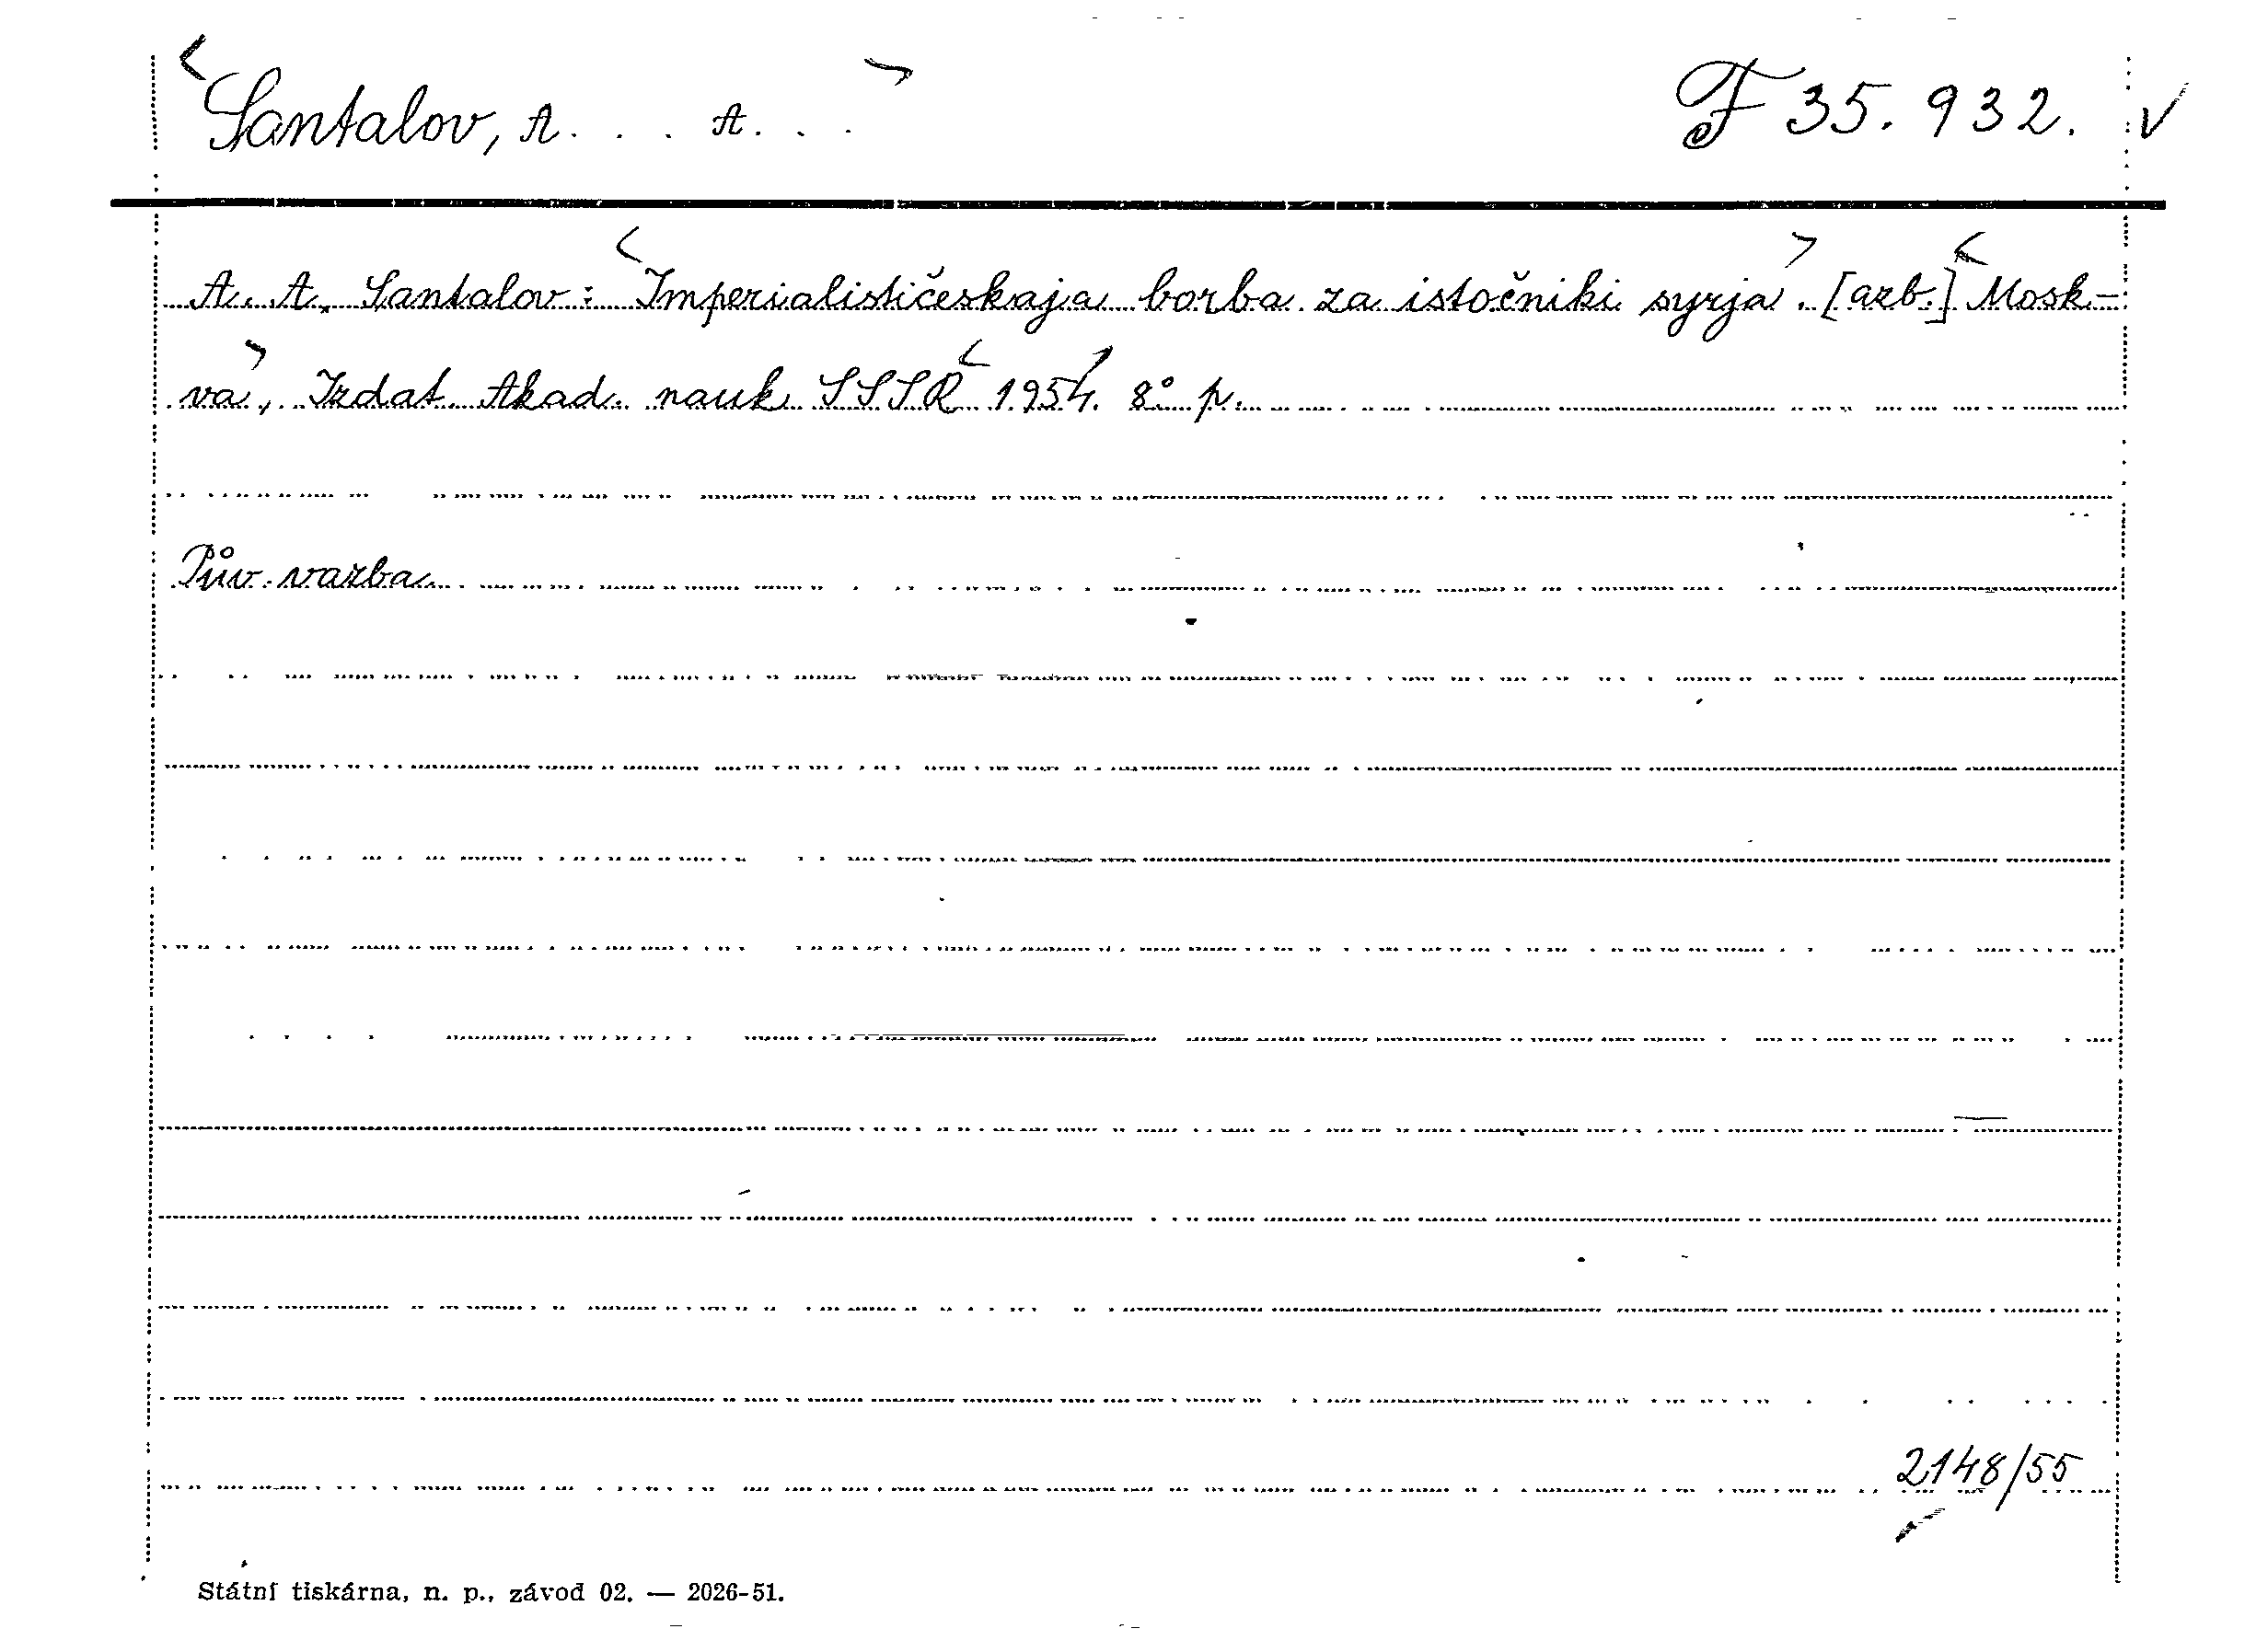 Santalov, A. . . A. . . F 35.932. ✓
A. A. Santalov: Imperialističeskaja borba za istočniki syrja. [azb.] Mosk-
va, Izdat. Akad. nauk SSSR 1954. 8° p.
Pův. vazba.
2148/55
Státní tiskárna, n. p., závod 02. — 2026-51.